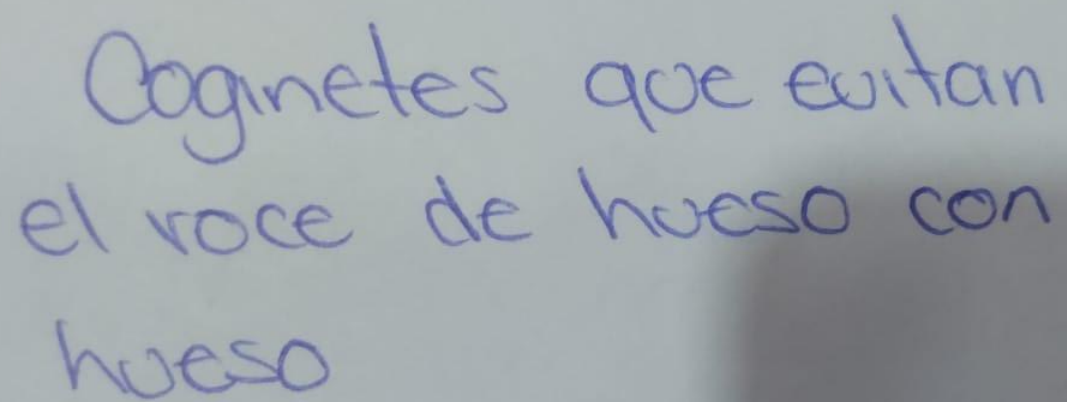 Coginetes que evitan
el roce de hueso con
hueso